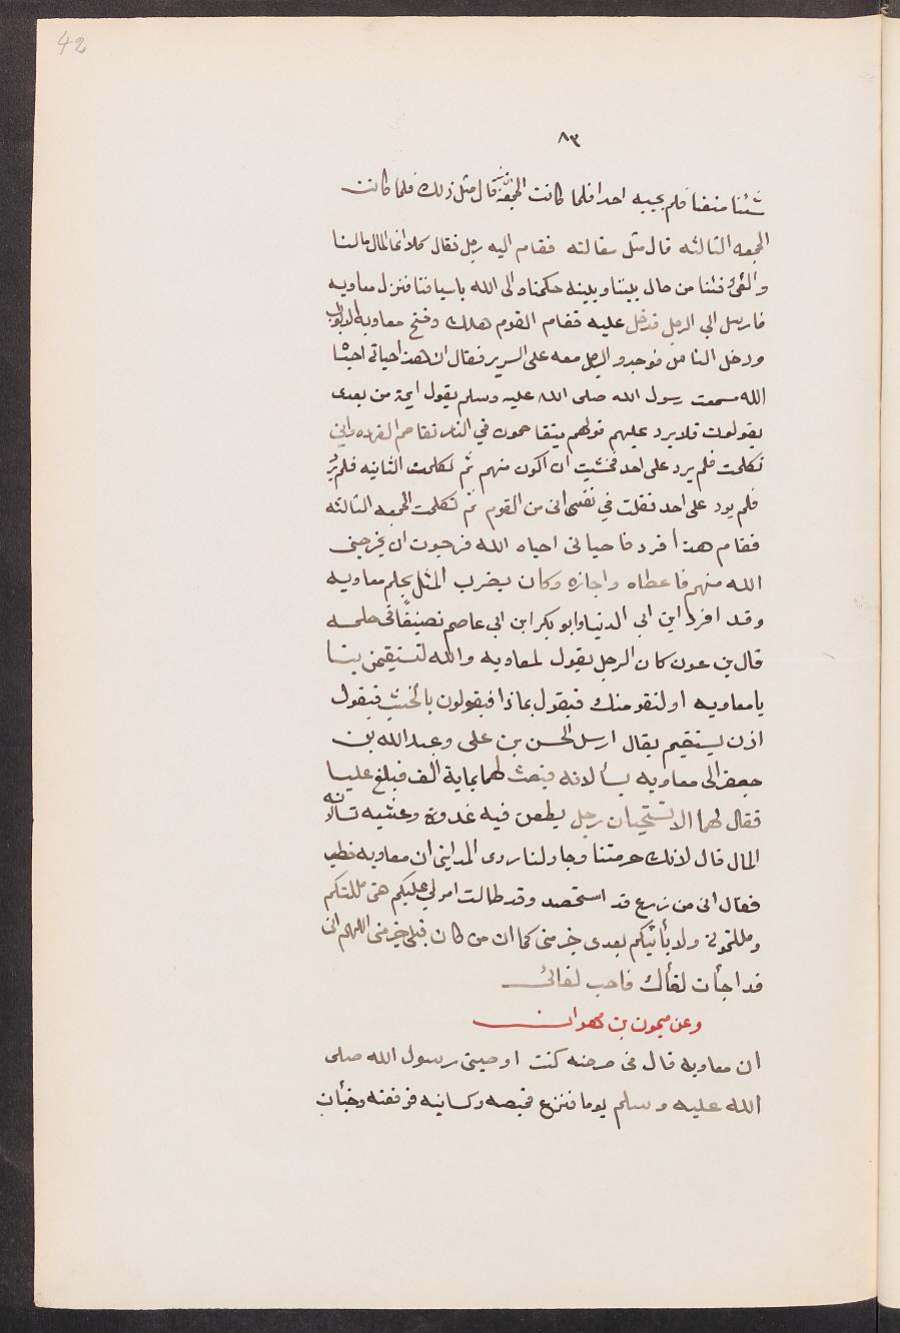 42
٨٣
شئنا منعنا فلم يجبه احد فلما كانت الجمعه الثانيه قال مثل ذلك فلما كانت
الجمعه الثالثه قال مثل مقالته فقام اليه رجل فقال كلا انما المال مالنا
والفئ فئنا من حال بيننا وبينه حكمناه الى الله باسيافنا فنزل معاويه
فارسل الي الرجل فدخل عليه فقام القوم هلك وفتح معاويه الابواب
ودخل الناس فوجدو الرجل معه على السرير فقال ان هذا حياتي احيا
الله سمعت رسول الله صلى الله عليه وسلم يقول ايمة من بعدى
يقولون فلا يرد عليهم قولهم يتقاحمون في النار تقاحم القرده واني
تكلمت فلم يرد على احد فخشيت ان اكون منهم ثم تكلمت الثانيه فلم ير
فلم يرد على احد فقلت في نفسي انى من القوم ثم تكلمت الجمعه الثالثه
فقام هذا فرد فاحيانى احياه الله فرجوت ان يخرجنى
الله منهم فاعطاه واجازه وكان يضرب المثل بحلم معاويه
وقد افرد ابن ابي الدنيا وابو بكر ابن ابي عاصم تصنيفا فى حلمه
قال بن عون كان الرجل يقول لمعاويه والله لتستقيمن بنا
يامعاويه او لنقومنك فيقول بماذا فيقولون بالخشب فيقول
اذن يستقيم يقال ارسل الحسن بن على وعبد الله بن
جعفر الى معاويه يسألانه فبعث لهما بماية الف فبلغ عليا
فقال لهما الا تستحيان رجل يطعن فيه غدوة وعشيه تسألانه
المال قال لانك حرمتنا وجاد لنا روى المدايني ان معاويه خطب
فقال انى من زرع قد استحصد وقد طالت امرلي عليكم حتى مللتكم
ومللتمونى ولا يأتيكم بعدى خير منى كما ان من كان قبلى خير منى اللهم انى
قد اجأت لقأك فاحب لقائى
وعن ميمون بن مهران
ان معاويه قال فى مرضه كنت اوصيتى رسول الله صلى
الله عليه وسلم يوما فنزع قميصه وكسانيه فرفعته وخبأت